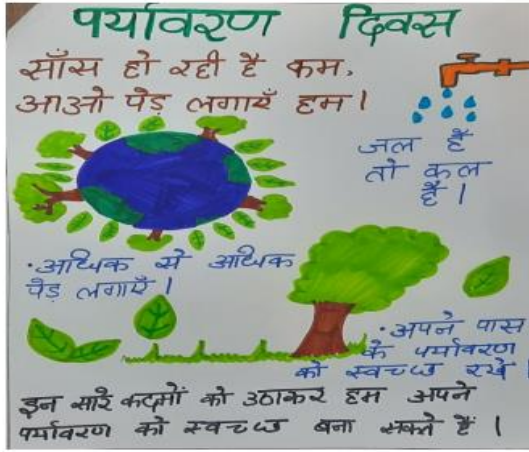 पर्यावरण दिवस
साँस हो रही है कम,
आओ पेड़ लगाएँ हम।
जल है
तो कल
है।
• अधिक से अधिक
पेड़ लगाएँ।
• अपने पास
के पर्यावरण
को स्वच्छ रखे।
इन सारे कदमों को उठाकर हम अपने
पर्यावरण को स्वच्छ बना सकते हैं।